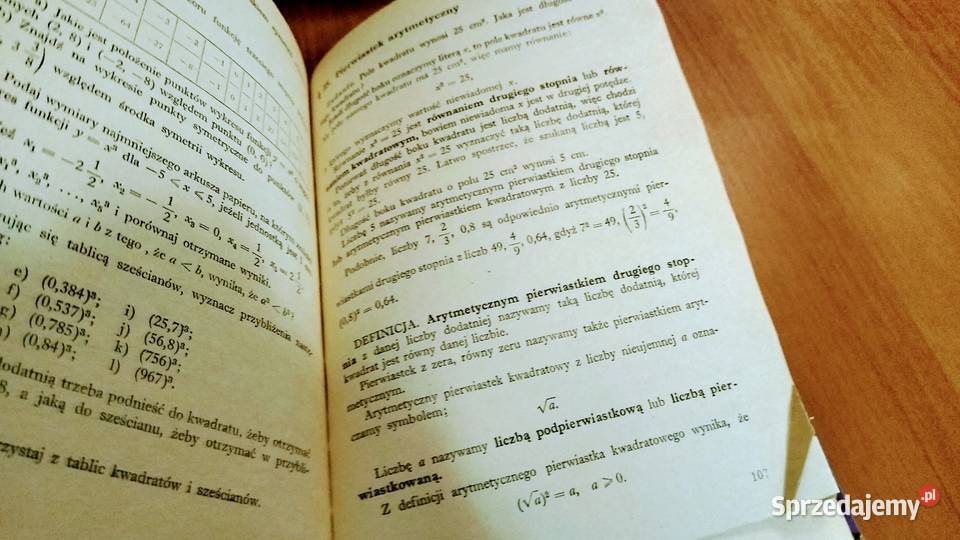 nych (2, 8) i (−2, −8) względem punktu (0, 0)?
Znajdź na wykresie punkty symetyczne do punktów
względem środka symetrii wykresu.
Podaj wymiary najmniejszego arkusza papieru, na którym
funkcji y = x³ dla −5 < x < 5, jeżeli jednostką jest
x₁ = −2 1/2, x₂ = − 1/2, x₃ = 0, x₄ = 1/2, x₅ = 2 1/2
i porównaj otrzymane wyniki.
wartości a i b z tego, że a < b, wynika, że a³ < b³?
się tablicą sześcianów, wyznacz przybliżenia
e) (0,384)³; i) (25,7)³;
f) (0,537)³; j) (56,8)³;
g) (0,785)³; k) (756)³;
(0,84)³; l) (967)³.
dodatnią trzeba podnieść do kwadratu, żeby otrzymać
8, a jaką do sześcianu, żeby otrzymać w przybli-
z tablic kwadratów i sześcianów.
Pierwiastek arytmetyczny
Pole kwadratu wynosi 25 cm². Jaka jest długość
długość boku oznaczymy literą x, to pole kwadratu jest równe x².
kwadratu ma 25 cm², więc mamy równanie:
x² = 25,
którego wyznaczymy wartość niewiadomej x.
Równanie x² = 25 jest równaniem drugiego stopnia lub rów-
naniem kwadratowym, bowiem niewiadoma x jest w drugiej potędze.
Ponieważ długość boku kwadratu jest liczbą dodatnią, więc chodzi
o to, żeby z równania x² = 25 wyznaczyć taką liczbę dodatnią, której
kwadrat byłby równy 25. Łatwo spostrzec, że szukaną liczbą jest 5,
5² = 25.
Długość boku kwadratu o polu 25 cm² wynosi 5 cm.
Liczbę 5 nazywamy arytmetycznym pierwiastkiem drugiego stopnia
lub arytmetycznym pierwiastkiem kwadratowym z liczby 25.
Podobnie, liczby 7, 2/3, 0,8 są odpowiednio arytmetycznymi pier-
wiastkami drugiego stopnia z liczb 49, 4/9, 0,64, gdyż 7² = 49, (2/3)² = 4/9,
(0,8)² = 0,64.
DEFINICJA. Arytmetycznym pierwiastkiem drugiego stop-
nia z danej liczby dodatniej nazywamy taką liczbę dodatnią, której
kwadrat jest równy danej liczbie.
Pierwiastek z zera, równy zeru nazywamy także pierwiastkiem aryt-
metycznym.
Arytmetyczny pierwiastek kwadratowy z liczby nieujemnej a ozna-
czamy symbolem;
√a.
Liczbę a nazywamy liczbą podpierwiastkową lub liczbą pier-
wiastkowaną.
Z definicji arytmetycznego pierwiastka kwadratowego wynika, że
(√a)² = a, a ⩾ 0.
107
Sprzedajemy.pl